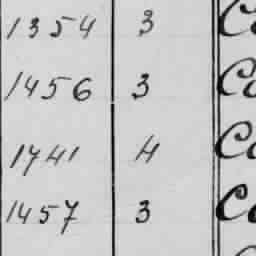 1354 3 Co
1456 3 Co
1741 4 Co
1457 3 Co